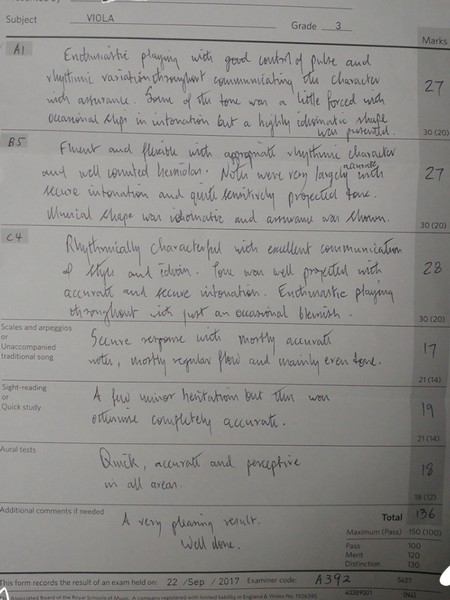 Subject VIOLA Grade 3
Marks
A1
Enthusiastic playing with good control of pulse and
rhythmic variation throughout communicating the character
with assurance. Some of the tone was a little forced with
occasional slips in intonation but a highly idiomatic shape
was presented.
27
30 (20)
B5
Fluent and flexible with appropriate rhythmic character
and well counted hemiolas. Notes were very largely accurate with
secure intonation and quite sensitively projected tone.
Musical shape was idiomatic and assurance was shown.
27
30 (20)
C4
Rhythmically characterful with excellent communication
of style and idiom. Tone was well projected with
accurate and secure intonation. Enthusiastic playing
throughout with just an occasional blemish.
28
30 (20)
Scales and arpeggios
or
Unaccompanied
traditional song
Secure response with mostly accurate
notes, mostly regular flow and mainly even tone.
17
21 (14)
Sight-reading
or
Quick study
A few minor hesitations but this was
otherwise completely accurate.
19
21 (14)
Aural tests
Quick, accurate and perceptive
in all areas.
18
18 (12)
Additional comments if needed
A very pleasing result.
Well done.
Total 136
Maximum (Pass) 150 (100)
Pass 100
Merit 120
Distinction 130
This form records the result of an exam held on: 22 / Sep / 2017 Examiner code: A392
Associated Board of the Royal Schools of Music. A company registered with limited liability in England & Wales No.